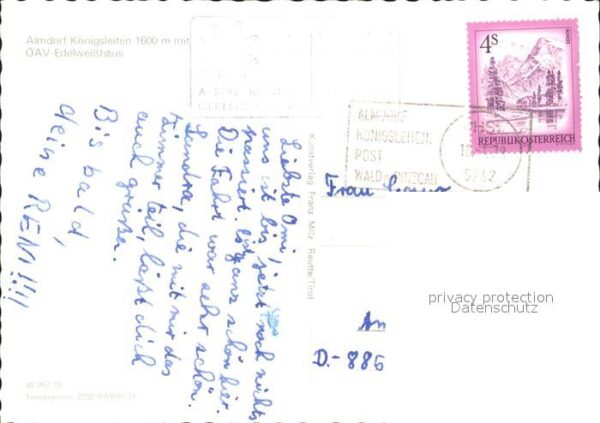 Almdorf Königsleiten 1600 m mit
ÖAV-Edelweißhaus
A-5742
4s
REPUBLIK ÖSTERREICH
ALMDORF
KÖNIGSLEITEN,
POST
WALD PINZGAU
5742
Liebste Omi,
uns ist bis jetzt noch nichts
passiert. Es ist ganz schön hier.
Die Fahrt war sehr schön.
Sandra, die mit mir das
Zimmer teilt, läßt dich
auch grüßen.
Bis bald,
deine RENI!!!!
Kunstverlag Franz Milz, Reutte/Tirol
Frau
An
D.-886
privacy protection
Datenschutz